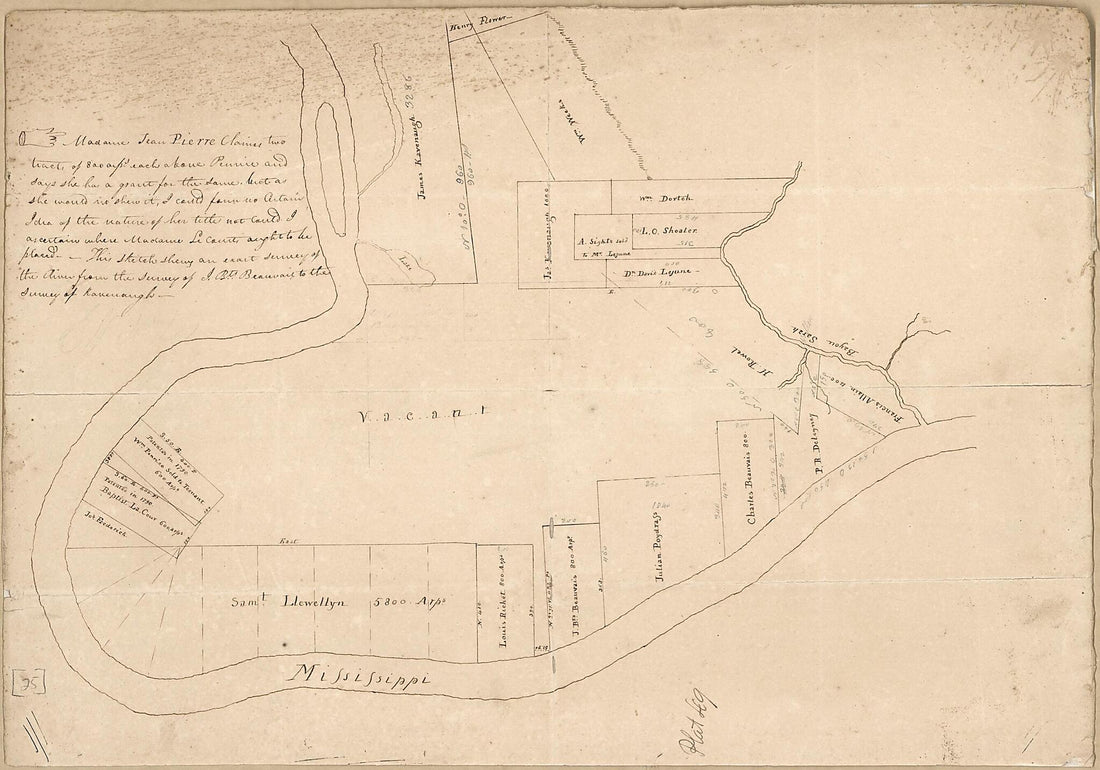 Henry Flower
Wm Weeks
James Kavenaugh 3286
960
N. 10. O. 960
Madame Jean Pierre Claims two
tracts of 800 arps each above Pennie and
says she has a grant for the same. but as
she would not shew it, I could form no certain
Idea of the nature of her title not could I
ascertain where Madame Le Court aught to be
placed — This sketch shews an exact survey of
the river from the survey of J. Bte Beauvais to the
Survey of Kavenaugh —
Lake
Jas Kavenaugh 1000
Wm Dortch
L. O. Shoater
A. Sights sold
to Mr Lejune
Dr Davis Lejune
H Rowel
Bayou Sarah
Francis Allain 400
P. R. Delogney
Vacant
Patented in 1790
Wm Pennice Sold to Tennant
600 Arps
Patented in 1790
Baptist La Cour 600 arps
Jas Frederick
East
Saml Llewellyn 5800 Arps
Louis Richet 800 Arps
J. Bte Beauvais 800 Arps
Julian Poydrass
1240
Charles Beauvais 800
Mississippi
25
Plat 49